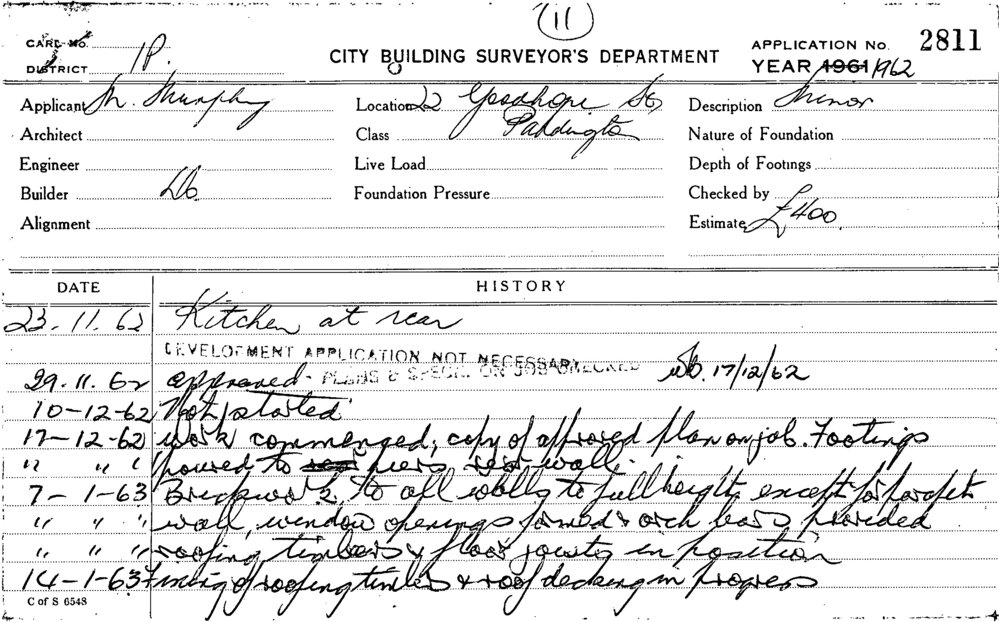 (11)
CARD No.
DISTRICT 1P.
CITY BUILDING SURVEYOR'S DEPARTMENT
APPLICATION No. 2811
YEAR 1961/1962
Applicant M. Murphy
Location 22 St, Paddington
Description Minor
Architect
Class
Nature of Foundation
Engineer
Live Load
Depth of Footings
Builder Do.
Foundation Pressure
Checked by
Alignment
Estimate £400.
DATE HISTORY
23.11.62 Kitchen at rear
DEVELOPMENT APPLICATION NOT NECESSARY
PLANS & SPECN. ON JOB CHECKED
29.11.62 approved - 17/12/62
10-12-62 Not started
17-12-62 work commenced; copy of approved plan on job. Footings
" " " poured to piers rear wall.
7-1-63 Brickwork to all walls to full height except for parapet
" " " wall, window openings formed & arch bars provided
" " " roofing timbers & floor joists in position
14-1-63 Fixing of roofing timbers & roof decking in progress
C of S 6548